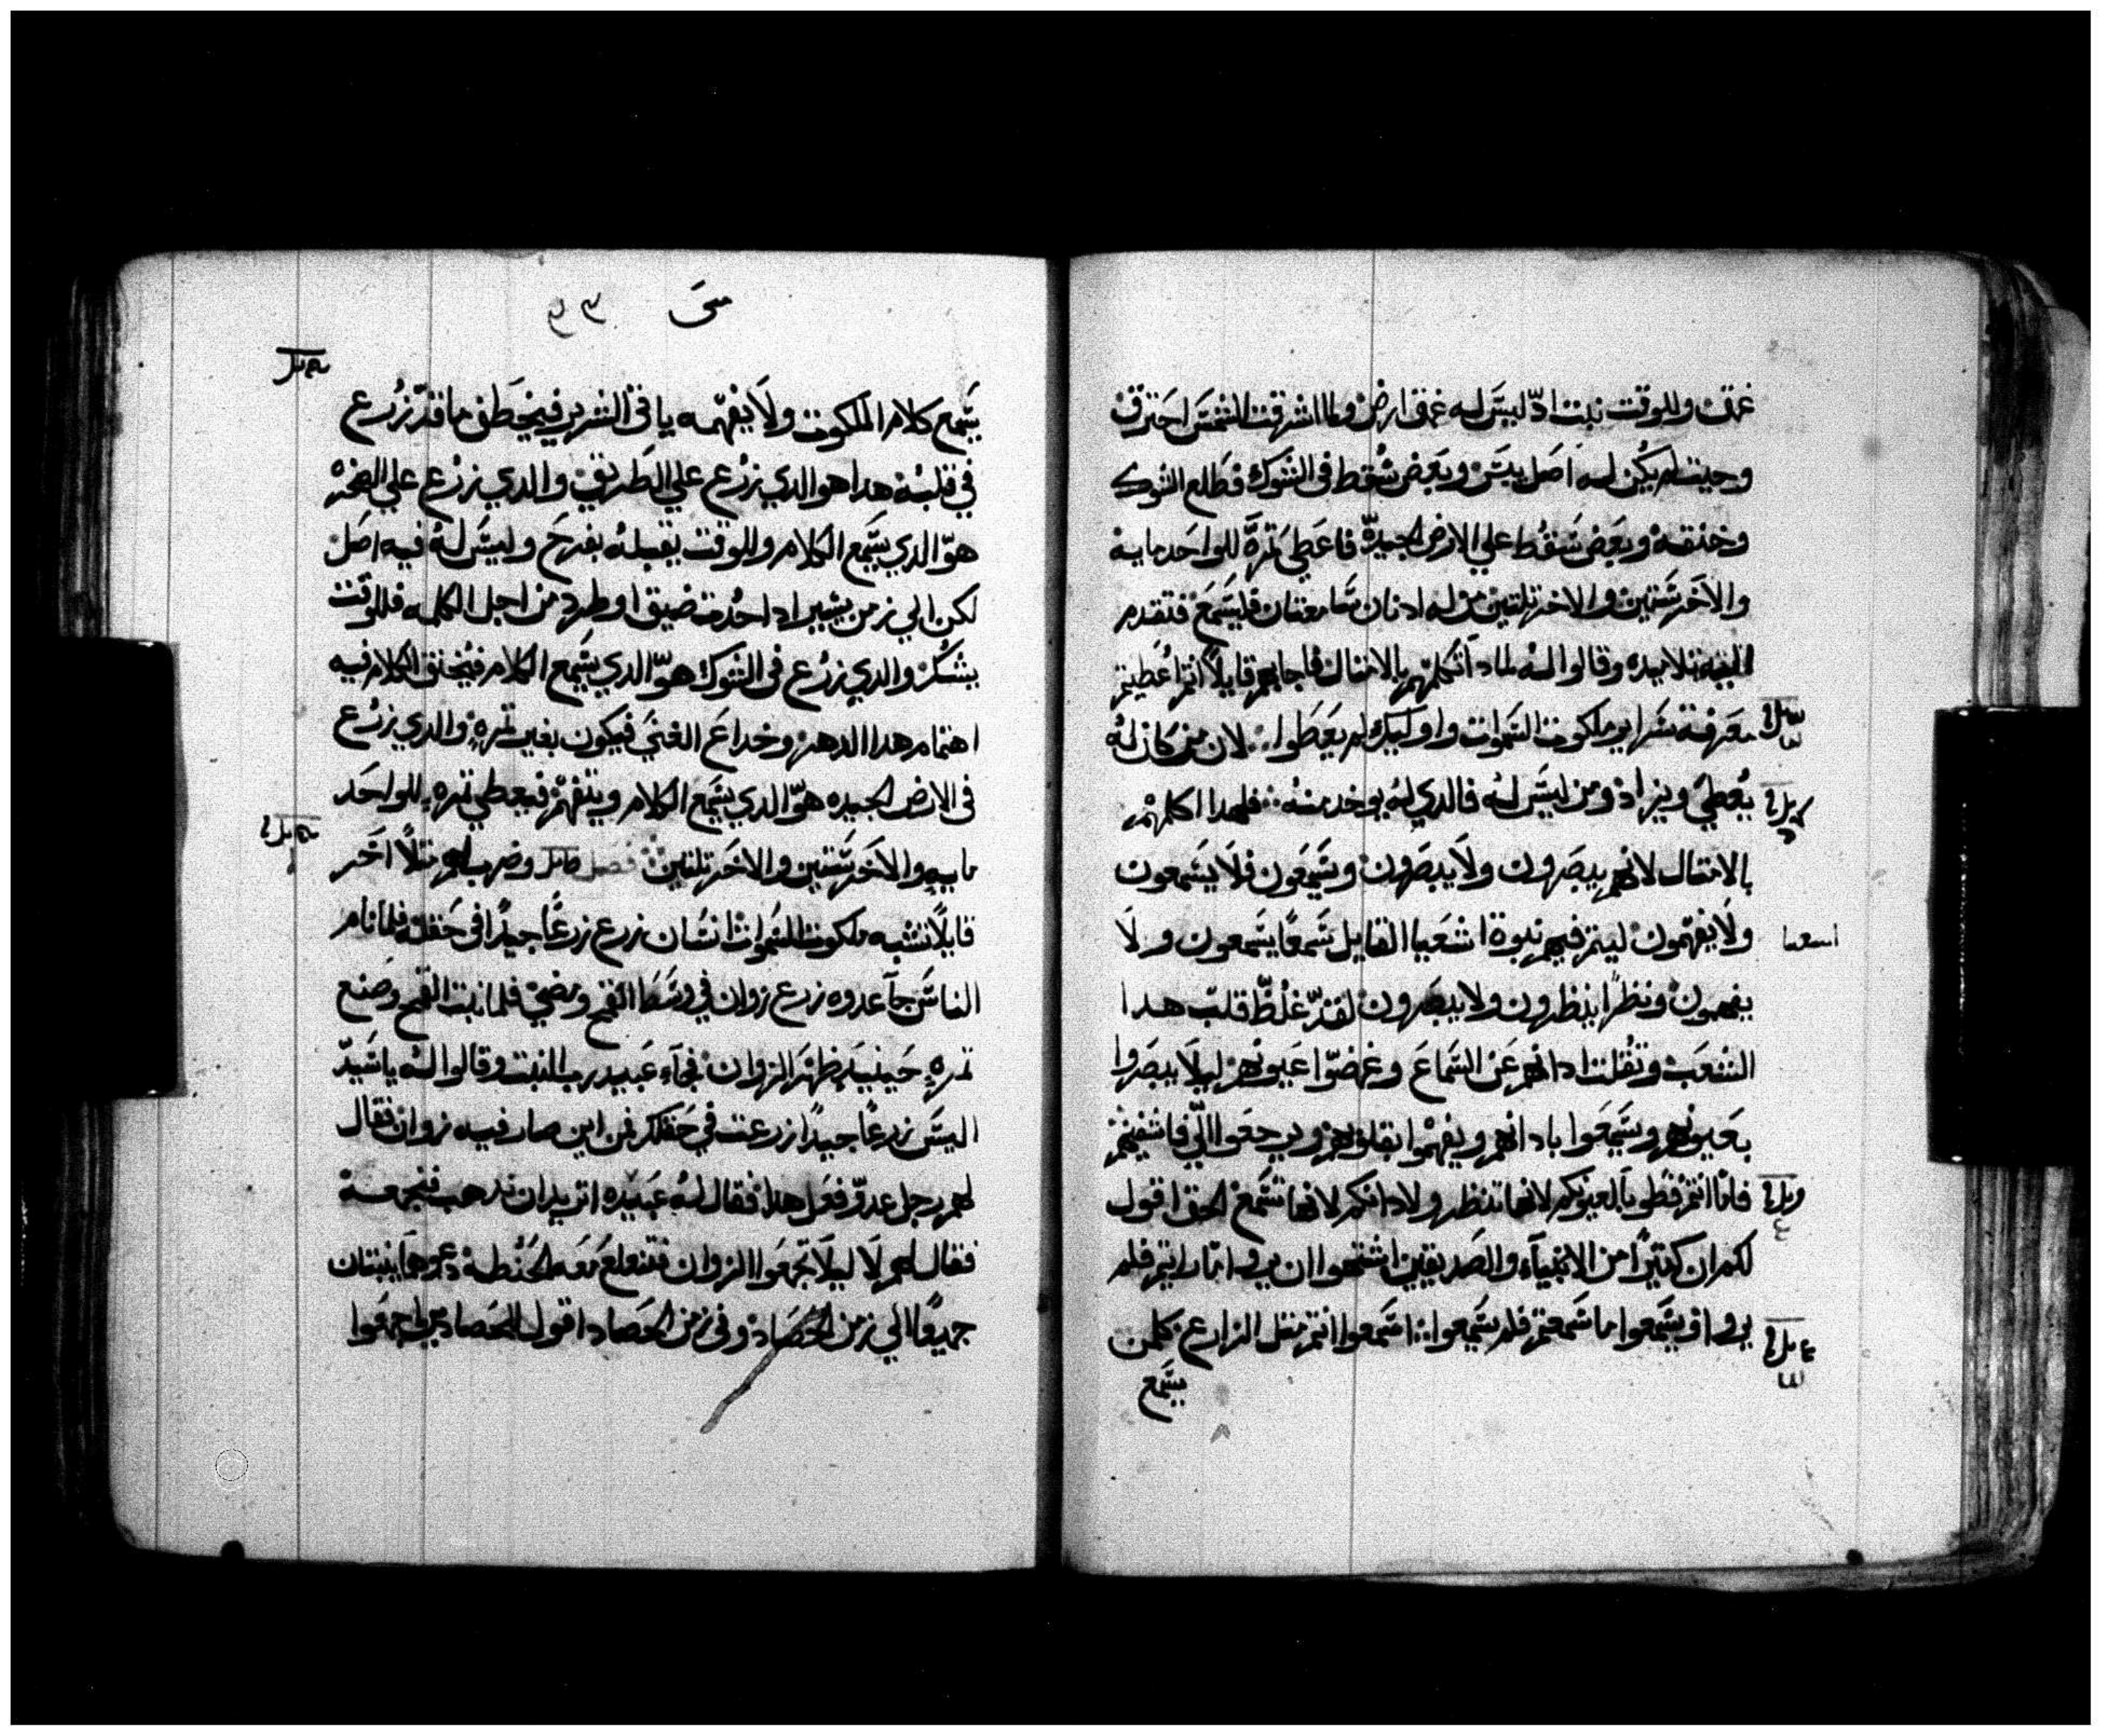 عمق وللوقت نبت ادّ ليسَ له عمق ارض ولما اشرقت الشمسَ احترق
وحيث لم يكُن له اصل يبسَ وبعض سُقط في الشوك فطلع الشوك
وخنقه وبعض سَقط علي الارض الجيدّه فاعطي تمرة للواحد مايه
والاخر ستين والاخر تلتين من له ادنان سَامعتان فليسَمع فتقدم
اليه تلاميده وقالوا له لمادا تكلمهم بالامثال فاجابهم قايلاً انتم اُعطيتم
معرفة سراير ملكوت السَموات واوليك لم يعَطوا لان من كان له
يُعطي ويزاد ومن ليسَ له فالدي له يوخد منه فلهدا اكلمهم
بالامتال لانهم يبصَرون ولا يبصَرون ويسَمعون فلا يسَمعون
ولا يفهمون ليتم فيهم نبوة اشعيا القايل سَمعًا يسَمعون ولا
اسعيا
يفهمون ونظرًا ينظرون ولا يبصَرون لقد غلُظ قلب هدا
الشعب وتقُلت ادانهم عن السَماع وغمضّوا عيونهم ليلا يبصَروا
بعيونهم ويسَمعوا بادانهم ويفهموا بقلوبهم ويرجعوا اليّ فاشفيهم
فاما انتم فطوبا لعيونكم لانها تنظر ولادانكم لانها تسَمع الحق اقول
لكم ان كتيرًا من الانبيآء والصَديقين اشتهوا ان يروا ما رايتم فلم
يروا وان يسَمعوا ما سَمعتم فلم يسَمعوا اسَمعوا انتم متل الزارع كلمن
يسَمع
متى
٩٣
يسَمع كلام الملكوت ولا يفهمه ياتي الشرير فيخطف ما قد زُرع
في قلبُه هدا هو الدي زرُع علي الطريق والدي زرُع علي الصخره
هوّ الدي يسَمع الكلام وللوقت يقبله بفرح وليسَ له فيه اصل
لكن الي زمن يسير ادا حدُت ضيق او طرد من اجل الكلمه فللوقت
يشكُ والدي زرُع في الشوك هوّ الدي يسَمع الكلام فيُخنق الكلام فيه
اهتمام هدا الدهر وخداع الغني فيكون بغير تمره والدي زرُع
في الارض الجيده هوّ الدي يسَمع الكلام ويتفهّم فيعطي تمره للواحَد
مايه والاخر ستين والاخر تلتين فصل وضرب لهم متلاً اخر
قايلاً تشبه ملكوت السَموات انسَان زرع زرعًا جيدًا في حقله فلما نام
الناسَ جآ عدوه زرع زوان في وسَط القمح ومضي فلما نبت القمح وصَنع
تمره حينيد ظهر الزوان فجآء عبيد رب البيت وقالوا له ياسَيدّ
اليسَ زرعًا جيدًا زرعت في حقلك فمن اين صار فيه زوان فقال
لهم رجل عدوّ فعل هدا فقال له عبيده اتريد ان ندهب فنجمعه
فقال لهم لا ليلا تجمعوا الزوان فتقلع معه الحنُطه دعوهما ينبتان
جميعًا الي زمن الحصَاد وفي زمن الحصَاد اقول للحصَادين اجمعوا